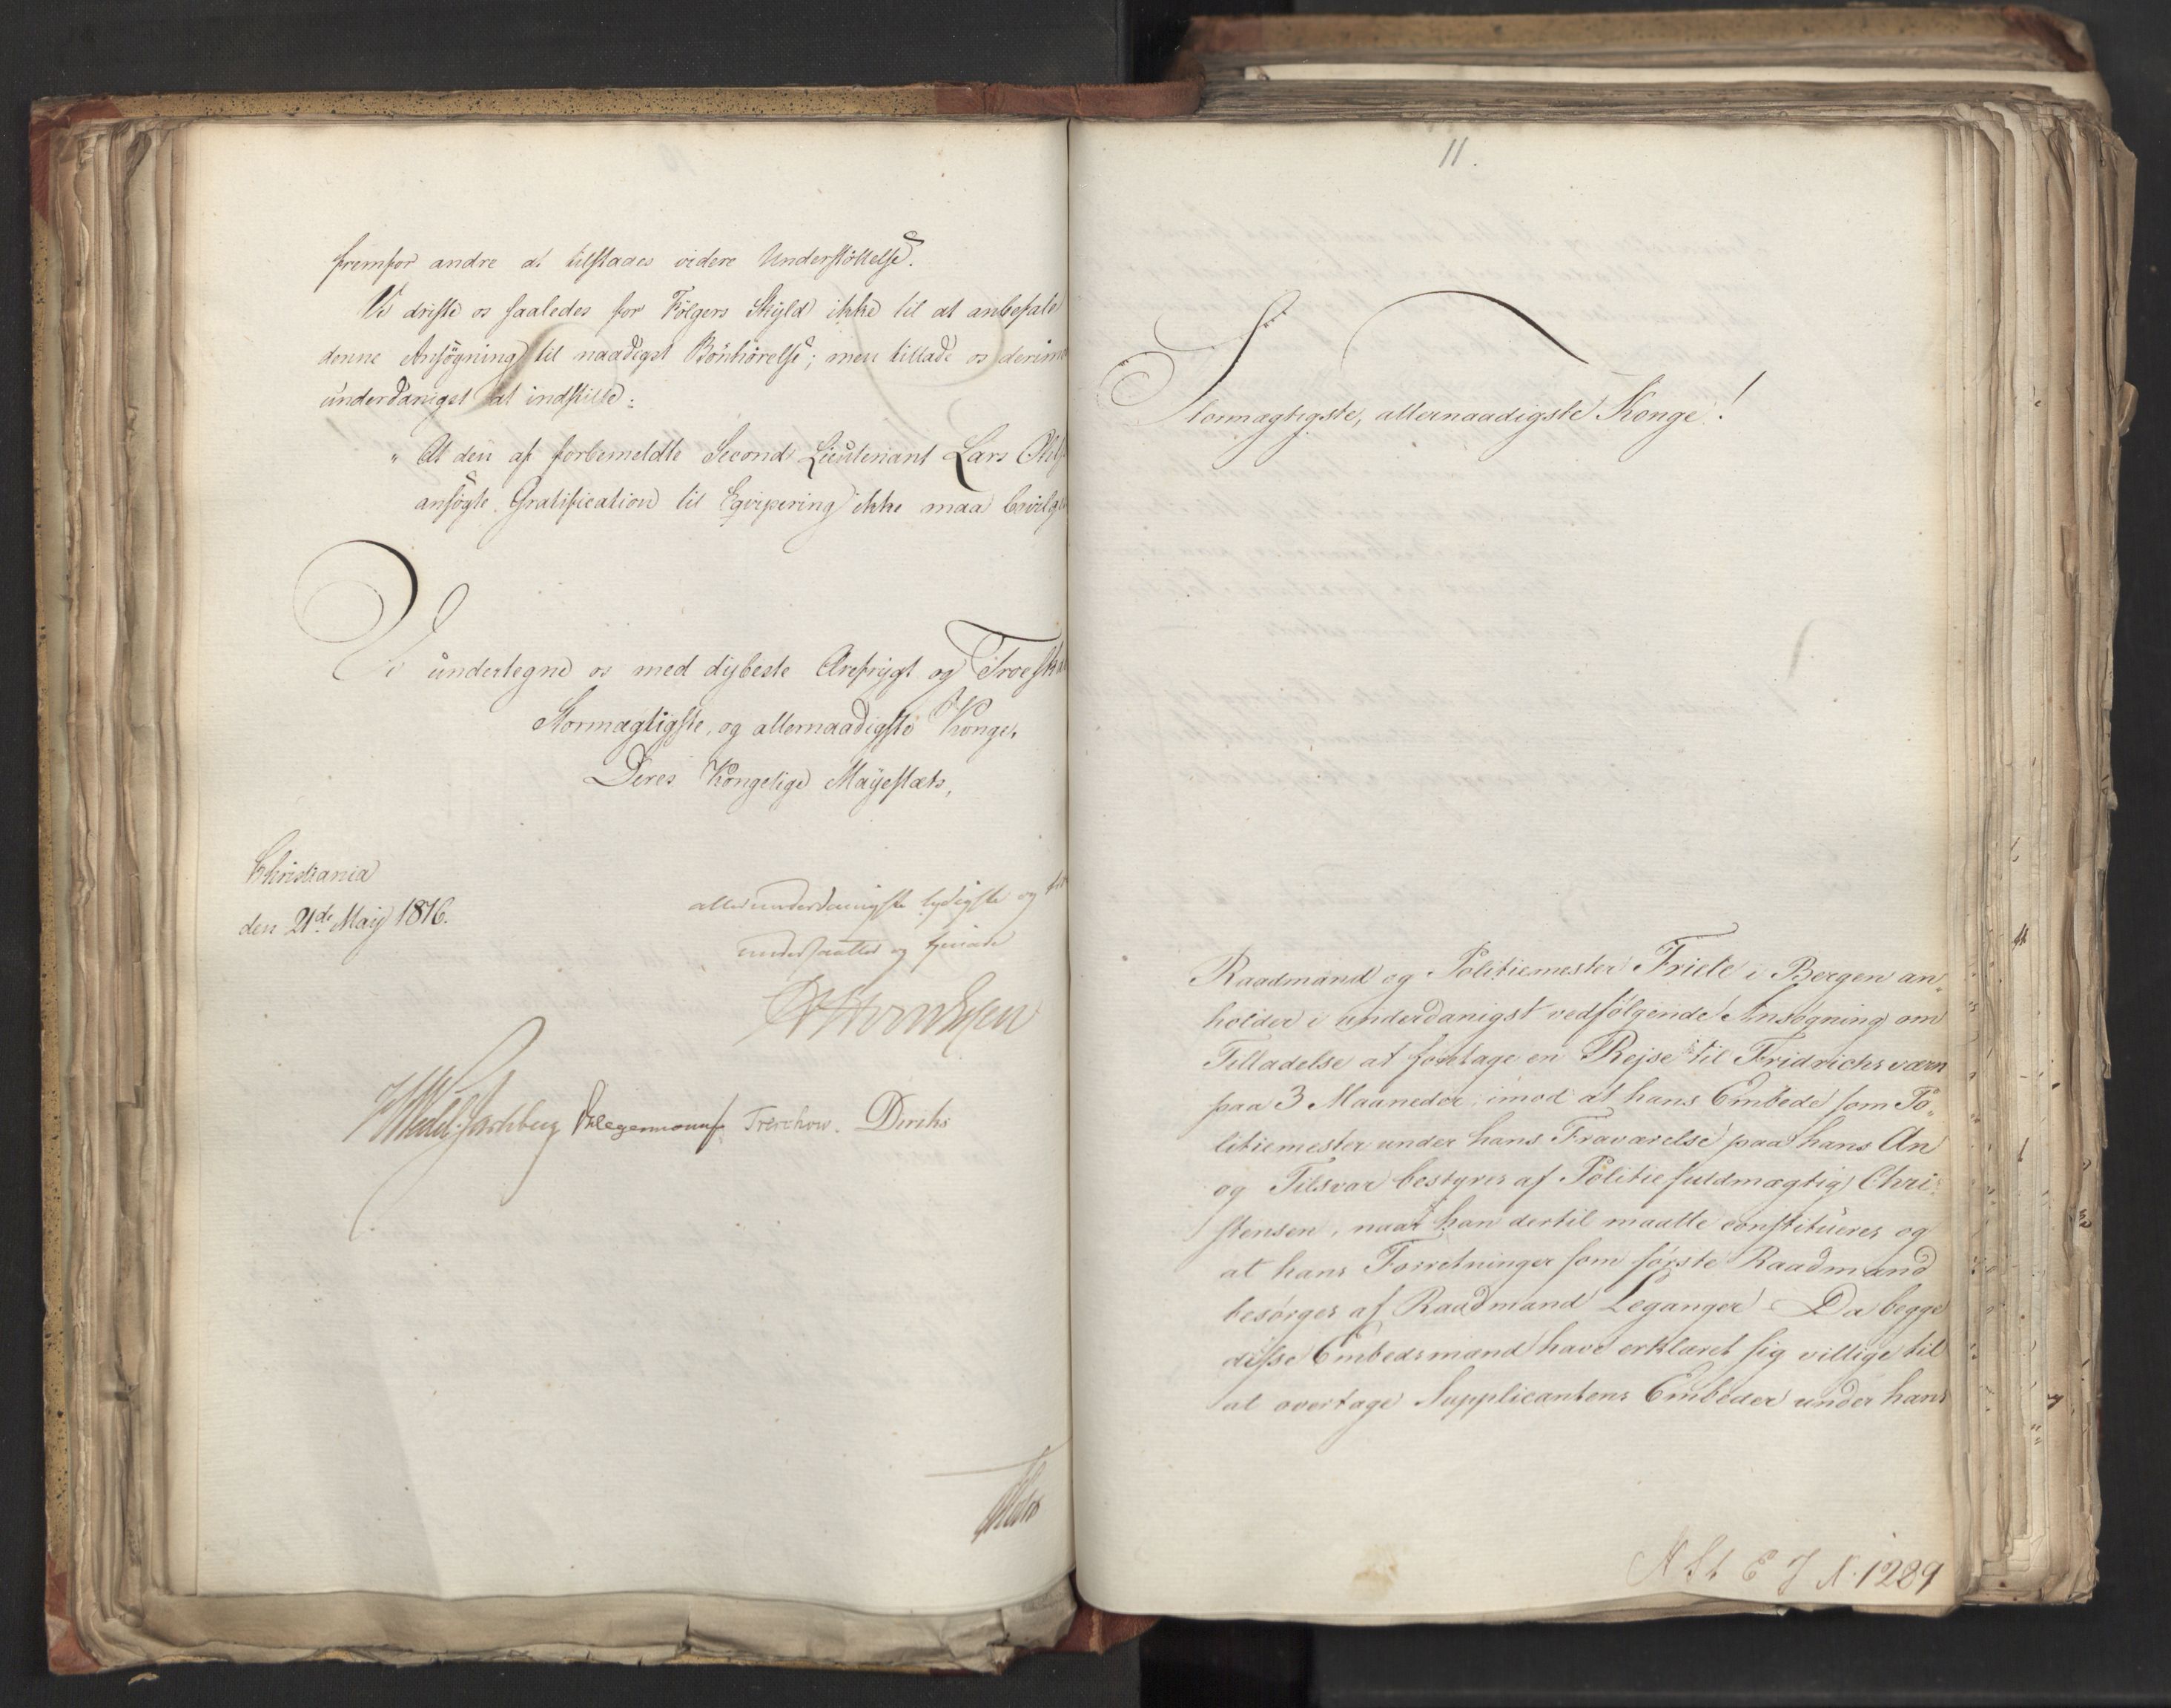 fremfor andre at tilstaaes videre Understöttelse.
Vi driste os saaledes for Følgers Skyld ikke til at anbefale
denne Ansögning til naadigst Bönhörelse; men tillade os derimo
underdanigst at indstille:
" At den af forbemeldte Second Lieutenant Lars
ansögte Gratification til Eqvipering ikke maa bevilges
Vi undertegne os med dybeste Ærefrygt og Troeska
Stormægtigste, og allernaadigste Konge,
Deres Kongelige Mayestæts,
Christiania
den 21de May 1816.
allerunderdanigste lydigste og
undersaatter og tjenere
Wedel-Jarlsberg Krieger Treschow. Diriks
11.
Stormægtigste, allernaadigste Konge!
Raadmand og Politiemester Friele i Bergen an„
holder i underdanigst vedfølgende Ansøgning om
Tilladelse at foretage en Rejse til Fridrichsværn
paa 3 Maaneder, imod at hans Embede som Po„
litiemester under hans Fraværelse paa hans An
og Tilsvar bestyres af Politiefuldmægtig Chri„
stensen, naar han dertil maatte constitueres og
at hans Forretninger som første Raadmand
besørges af Raadmand Leganger. Da begge
disse Embedsmænd have erklæret sig villige til
at overtage Supplicantens Embeder under hans
N St E J N. 1289